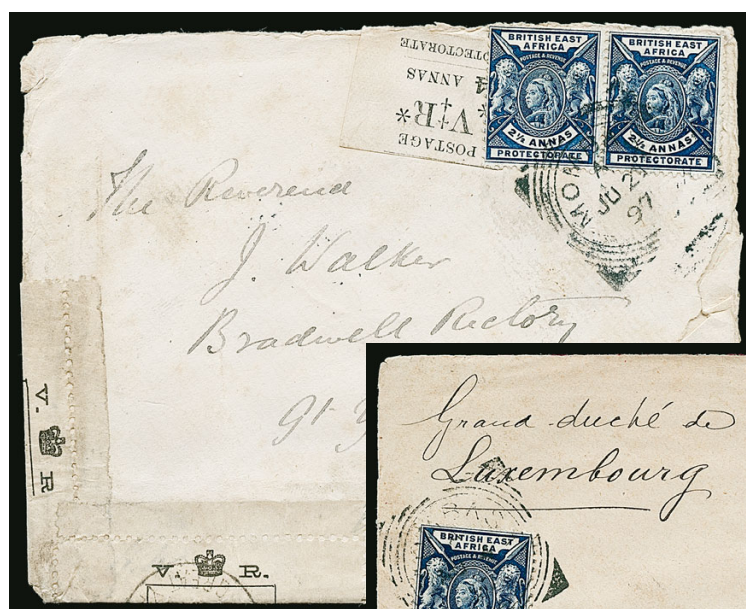 POSTAGE
*V‡R*
4 ANNAS
PROTECTORATE
BRITISH EAST
AFRICA
POSTAGE & REVENUE
2½ ANNAS
PROTECTORATE
BRITISH EAST
AFRICA
POSTAGE & REVENUE
2½ ANNAS
PROTECTORATE
MOM
JU 2
97
The Reverend
J. Walker
Bradwell Rectory
Gt Y
V. R
V. R.
Grand duché de
Luxembourg
BRITISH EAST
AFRICA
POSTAGE & REVENUE